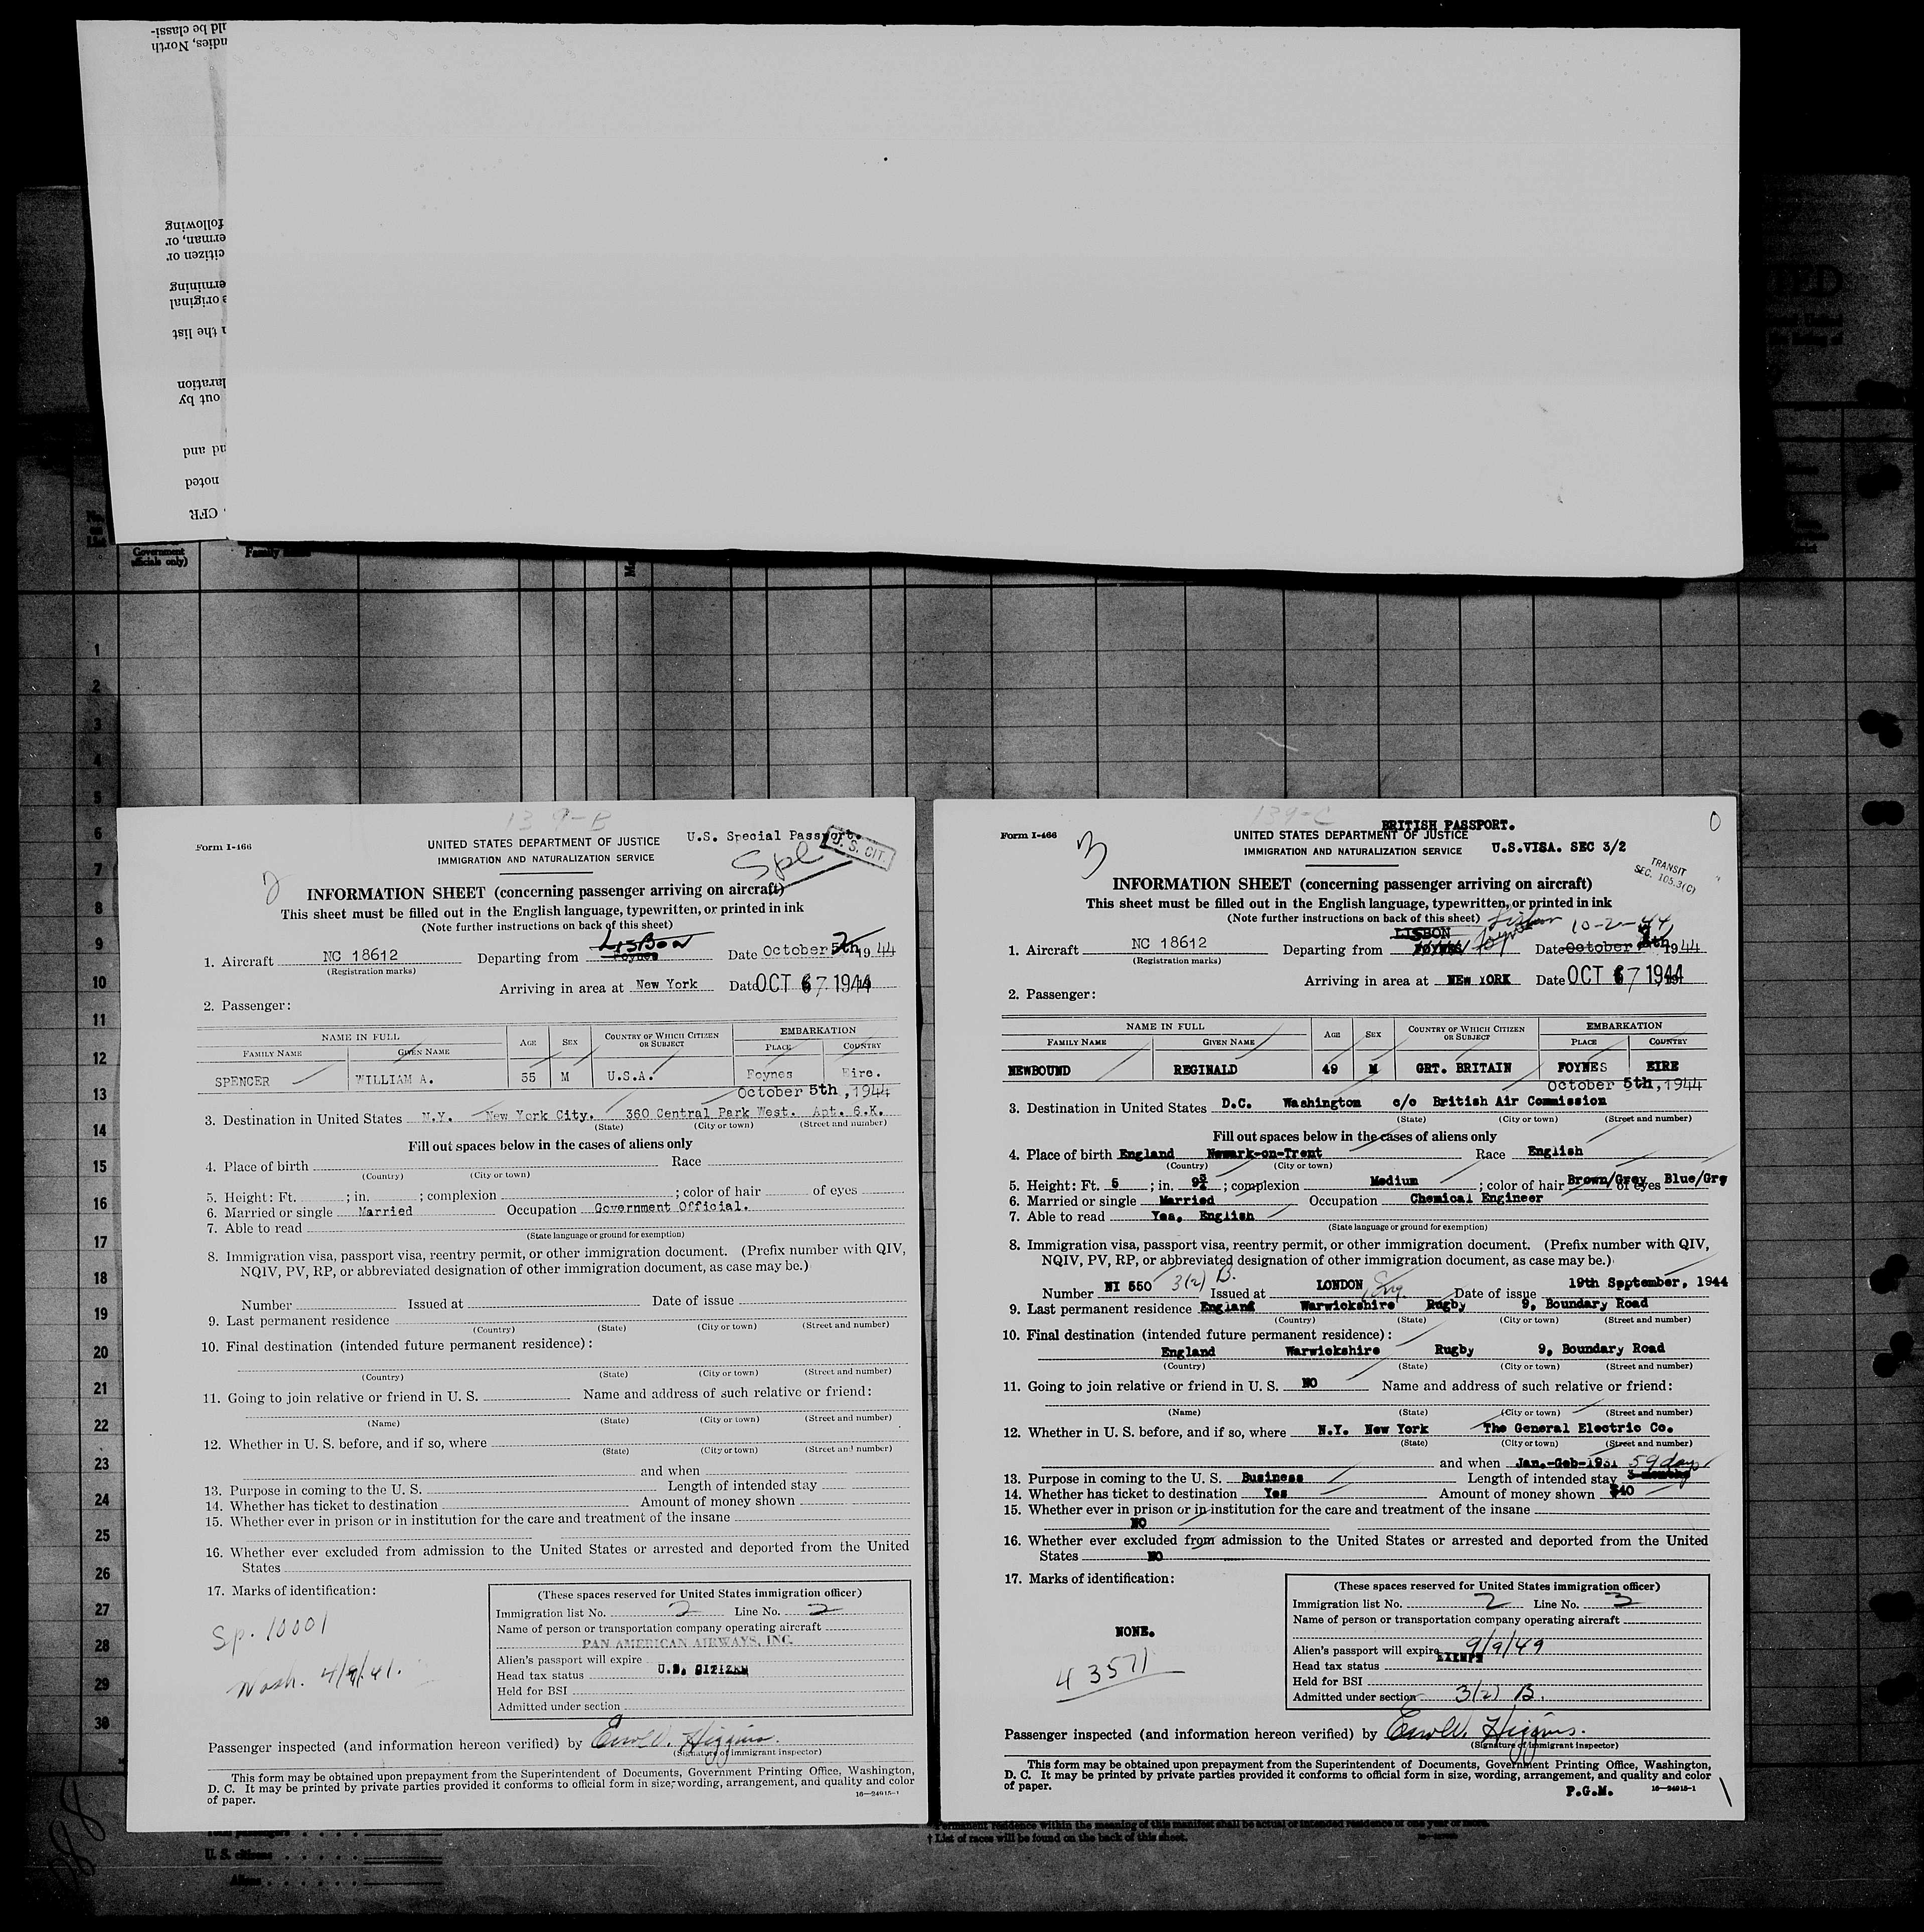 uld be classi-
ndies, North
following
erman, or
citizen or
ermining
e original
n the list
laration
out by
nd and
noted
, CFR
No.
on
List
Government
officials only)
Family
1
2
3
4
5
6
7
8
9
10
11
12
13
14
15
16
17
18
19
20
21
22
23
24
25
26
27
28
29
30
139-B
Form I-466
UNITED STATES DEPARTMENT OF JUSTICE
IMMIGRATION AND NATURALIZATION SERVICE
U.S. Special Passport.
U. S. CIT.
Spl
2
INFORMATION SHEET (concerning passenger arriving on aircraft)
This sheet must be filled out in the English language, typewritten, or printed in ink
(Note further instructions on back of this sheet)
LISBON
1. Aircraft NC 18612 Departing from Foynes Date October 5th 2 1944
(Registration marks)
Arriving in area at New York Date OCT 6 7 1944
2. Passenger:
NAME IN FULL AGE SEX COUNTRY OF WHICH CITIZEN OR SUBJECT EMBARKATION
FAMILY NAME GIVEN NAME PLACE COUNTRY
SPENCER WILLIAM A. 55 M U.S.A. Foynes Eire.
October 5th, 1944
3. Destination in United States N.Y. New York City. 360 Central Park West. Apt. 6.K.
(State) (City or town) (Street and number)
Fill out spaces below in the cases of aliens only
4. Place of birth Race
(Country) (City or town)
5. Height: Ft. ; in. ; complexion ; color of hair of eyes
6. Married or single Married Occupation Government Official.
7. Able to read
(State language or ground for exemption)
8. Immigration visa, passport visa, reentry permit, or other immigration document. (Prefix number with QIV,
NQIV, PV, RP, or abbreviated designation of other immigration document, as case may be.)
Number Issued at Date of issue
9. Last permanent residence
(Country) (State) (City or town) (Street and number)
10. Final destination (intended future permanent residence):
(Country) (State) (City or town) (Street and number)
11. Going to join relative or friend in U. S. Name and address of such relative or friend:
(Name) (State) (City or town) (Street and number)
12. Whether in U. S. before, and if so, where
(State) (City or town) (Street and number)
and when
13. Purpose in coming to the U. S. Length of intended stay
14. Whether has ticket to destination Amount of money shown
15. Whether ever in prison or in institution for the care and treatment of the insane
16. Whether ever excluded from admission to the United States or arrested and deported from the United
States
17. Marks of identification:
Sp. 10001
Wash. 4/9/41.
(These spaces reserved for United States immigration officer)
Immigration list No. 2 Line No. 2
Name of person or transportation company operating aircraft
PAN AMERICAN AIRWAYS, INC.
Alien's passport will expire
Head tax status U.S. CITIZEN
Held for BSI
Admitted under section
Passenger inspected (and information hereon verified) by Errol W. Higgins.
(Signature of immigrant inspector)
This form may be obtained upon prepayment from the Superintendent of Documents, Government Printing Office, Washington,
D. C. It may be printed by private parties provided it conforms to official form in size, wording, arrangement, and quality and color
of paper.
16—24915-1
139-C
Form I-466
3
BRITISH PASSPORT.
UNITED STATES DEPARTMENT OF JUSTICE
IMMIGRATION AND NATURALIZATION SERVICE
U.S.VISA. SEC 3/2
0
TRANSIT
SEC. 105.3(C)
INFORMATION SHEET (concerning passenger arriving on aircraft)
This sheet must be filled out in the English language, typewritten, or printed in ink
(Note further instructions on back of this sheet)
Lisbon 10-2-44
LISBON
1. Aircraft NC 18612 Departing from FOYNES Foynes Date October 5th 1944
(Registration marks)
Arriving in area at NEW YORK Date OCT 6 7 1944
2. Passenger:
NAME IN FULL AGE SEX COUNTRY OF WHICH CITIZEN OR SUBJECT EMBARKATION
FAMILY NAME GIVEN NAME PLACE COUNTRY
NEWBOUND REGINALD 49 M GRT. BRITAIN FOYNES EIRE
October 5th, 1944
3. Destination in United States D.C. Washington c/o British Air Commission
(State) (City or town) (Street and number)
Fill out spaces below in the cases of aliens only
4. Place of birth England Newark-on-Trent Race English
(Country) (City or town)
5. Height: Ft. 5 ; in. 9¾ ; complexion Medium ; color of hair Brown/Grey of eyes Blue/Gry
6. Married or single Married Occupation Chemical Engineer
7. Able to read Yes, English
(State language or ground for exemption)
8. Immigration visa, passport visa, reentry permit, or other immigration document. (Prefix number with QIV,
NQIV, PV, RP, or abbreviated designation of other immigration document, as case may be.)
Number NI 550 3(2) B. Issued at LONDON Eng. Date of issue 19th September, 1944
9. Last permanent residence England Warwickshire Rugby 9, Boundary Road
(Country) (State) (City or town) (Street and number)
10. Final destination (intended future permanent residence):
England Warwickshire Rugby 9, Boundary Road
(Country) (State) (City or town) (Street and number)
11. Going to join relative or friend in U. S. NO Name and address of such relative or friend:
(Name) (State) (City or town) (Street and number)
12. Whether in U. S. before, and if so, where N.Y. New York The General Electric Co.
(State) (City or town) (Street and number)
and when Jan.-Geb-1931 59 days
13. Purpose in coming to the U. S. Business Length of intended stay 3 months
14. Whether has ticket to destination Yes Amount of money shown $40
15. Whether ever in prison or in institution for the care and treatment of the insane
NO
16. Whether ever excluded from admission to the United States or arrested and deported from the United
States NO
17. Marks of identification:
NONE.
43571
(These spaces reserved for United States immigration officer)
Immigration list No. 2 Line No. 3
Name of person or transportation company operating aircraft
Alien's passport will expire 9/9/49
Head tax status EXEMPT
Held for BSI
Admitted under section 3(2) B.
Passenger inspected (and information hereon verified) by Errol W. Higgins.
(Signature of immigrant inspector)
This form may be obtained upon prepayment from the Superintendent of Documents, Government Printing Office, Washington,
D. C. It may be printed by private parties provided it conforms to official form in size, wording, arrangement, and quality and color
of paper.
P.G.M.
16—24915-1
Total passengers
U. S. citizens
Aliens
Permanent residence within the meaning of this manifest shall be actual or intended residence of one year or more.
† List of races will be found on the back of this sheet.